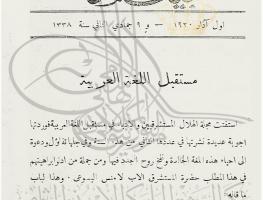 اول آذار ١٩٢٠ — و ٩ جمادى الثاني سنة ١٣٣٨
مستقبل اللغة العربية
استفتت مجلة الهلال المستشرقين والادباء في مستقبل اللغة العربية فوردتها
اجوبة عديدة نشرتها في عددها الثاني من هذه السنة وفي جملتها تفاؤل ودعوة
الى احياء هذه اللغة الخالدة ونفخ روح الجد فيها ومن جملة من ادلوا برأيهم
في هذا المطلب حضرة المستشرق الاب لامنس اليسوعي. وهذا لباب
ما قاله